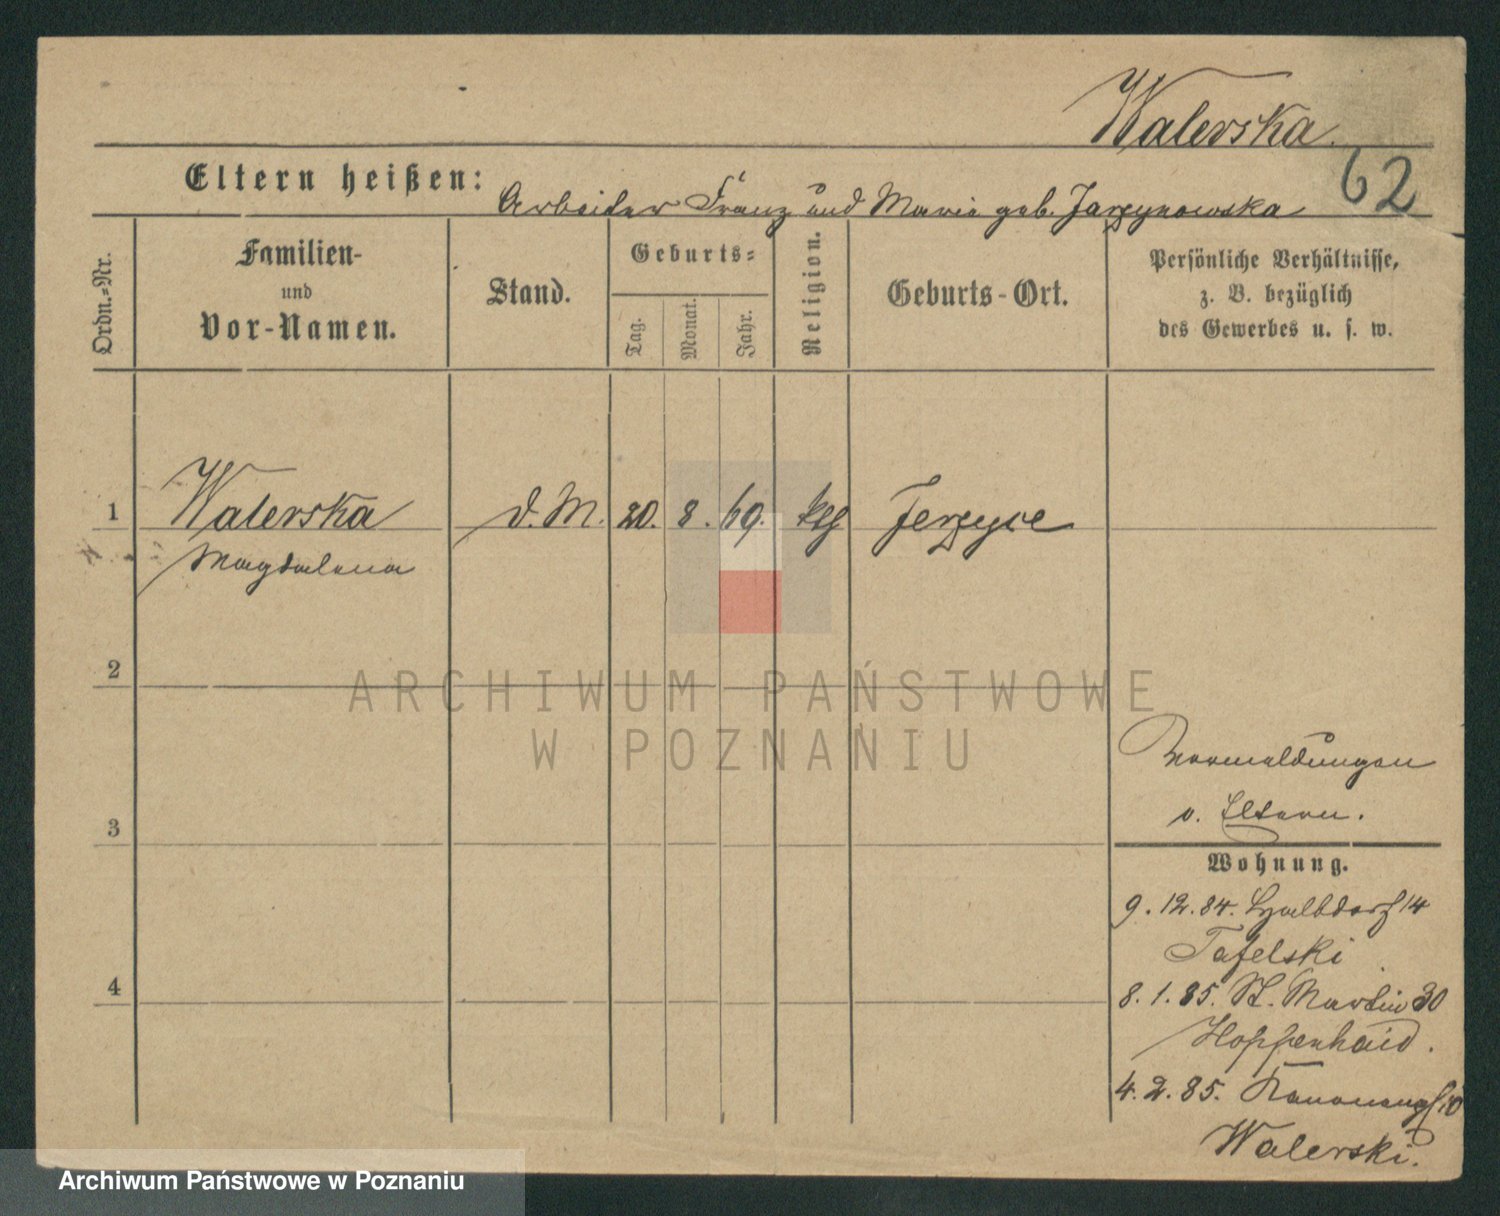 Walerska.
62
Eltern heißen: Arbeiter Franz und Marie geb. Jarzynowska
Ordn.-Nr.
Familien-
und
Vor-Namen.
Stand.
Geburts-
Tag.
Monat.
Jahr.
Religion.
Geburts-Ort.
Persönliche Verhältnisse,
z. B. bezüglich
des Gewerbes u. s. w.
1 Walerska d. M. 20. 8. 69. kth Jerzyce
Magdalena
2
ARCHIWUM PAŃSTWOWE
W POZNANIU
3
4
Anmeldungen
v. Eltern.
Wohnung.
9. 12. 84. Halbdorf 14
Tafelski
8. 1. 85. St. Martin 30
Hoppenhaid.
4. 2. 85. 10
Walerski.
Archiwum Państwowe w Poznaniu